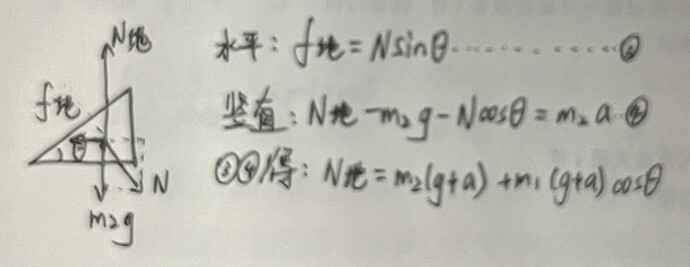 N地
f地
θ
N
m₂g
水平：f地=Nsinθ…………③
竖直：N地-m₂g-Ncosθ=m₂a…④
③④得：N地=m₂(g+a)+m₁(g+a)cosθ